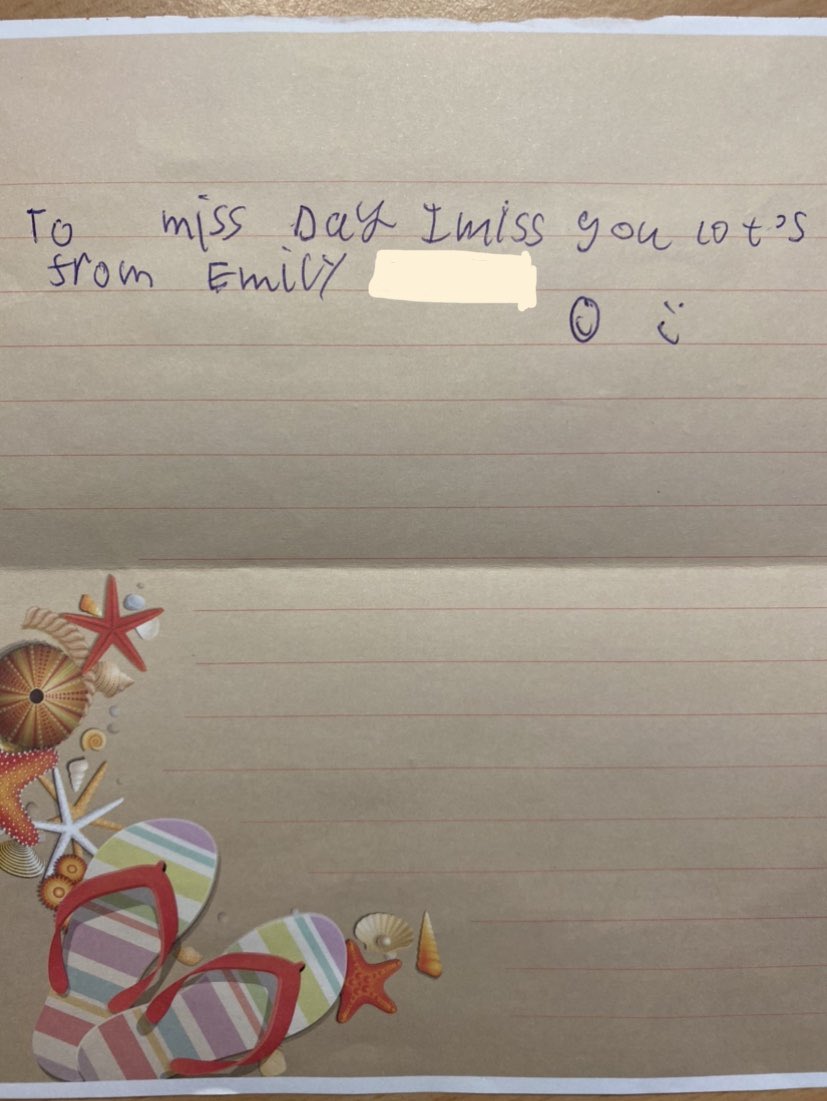 To miss Day I miss you lot's
from Emily